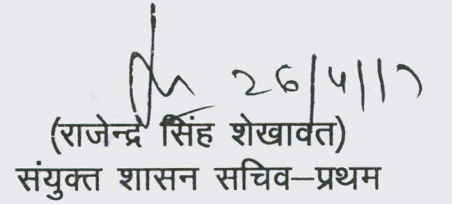 26/4/17
(राजेन्द्र सिंह शेखावत)
संयुक्त शासन सचिव–प्रथम